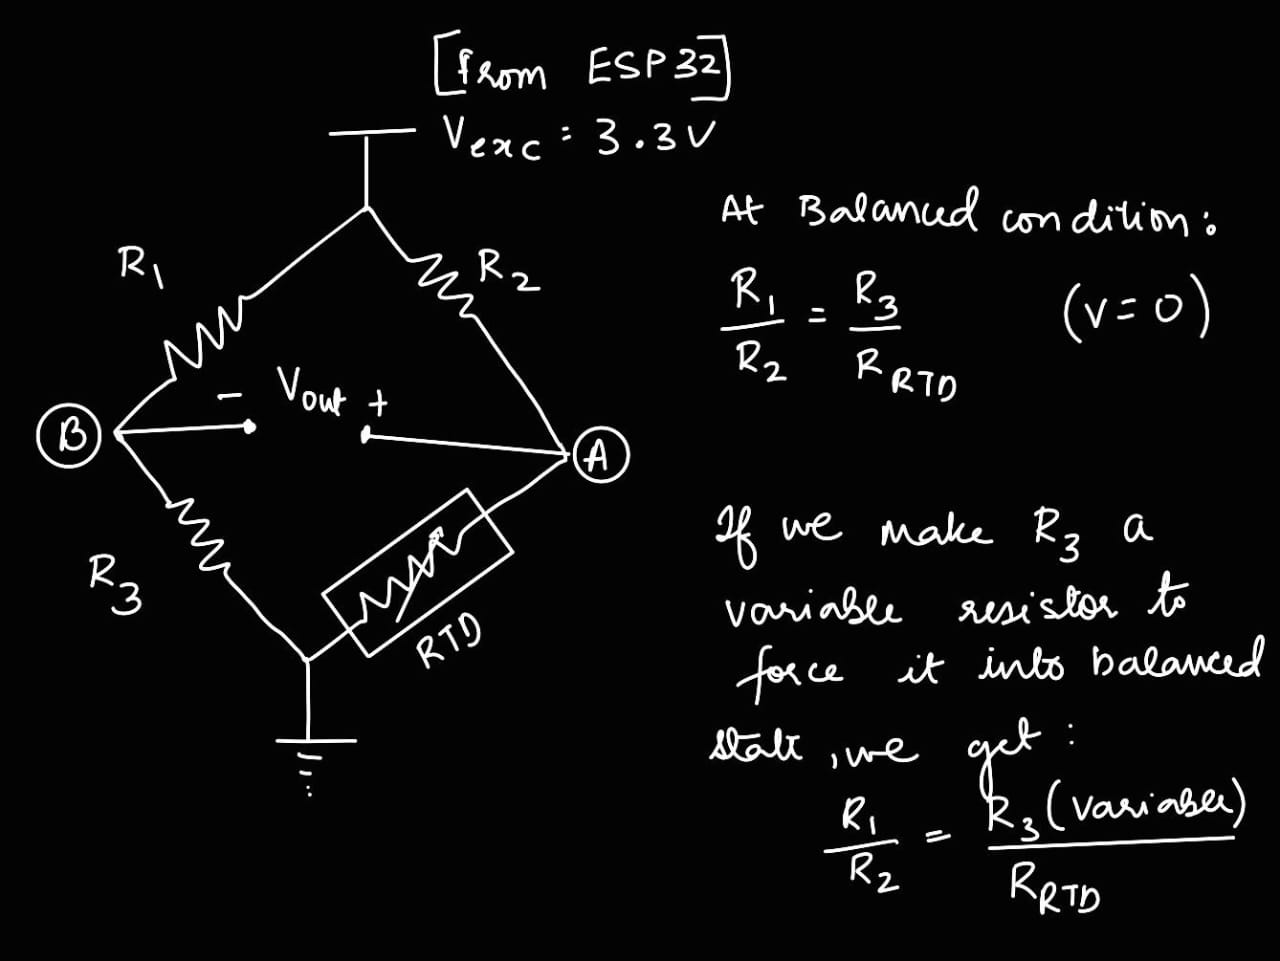 [from ESP32]
Vexc = 3.3V
R1
R2
- Vout +
B
A
R3
RTD
At Balanced condition:
R1/R2 = R3/RRTD (v=0)
If we make R3 a
variable resistor to
force it into balanced
state, we get:
R1/R2 = R3(variable)/RRTD